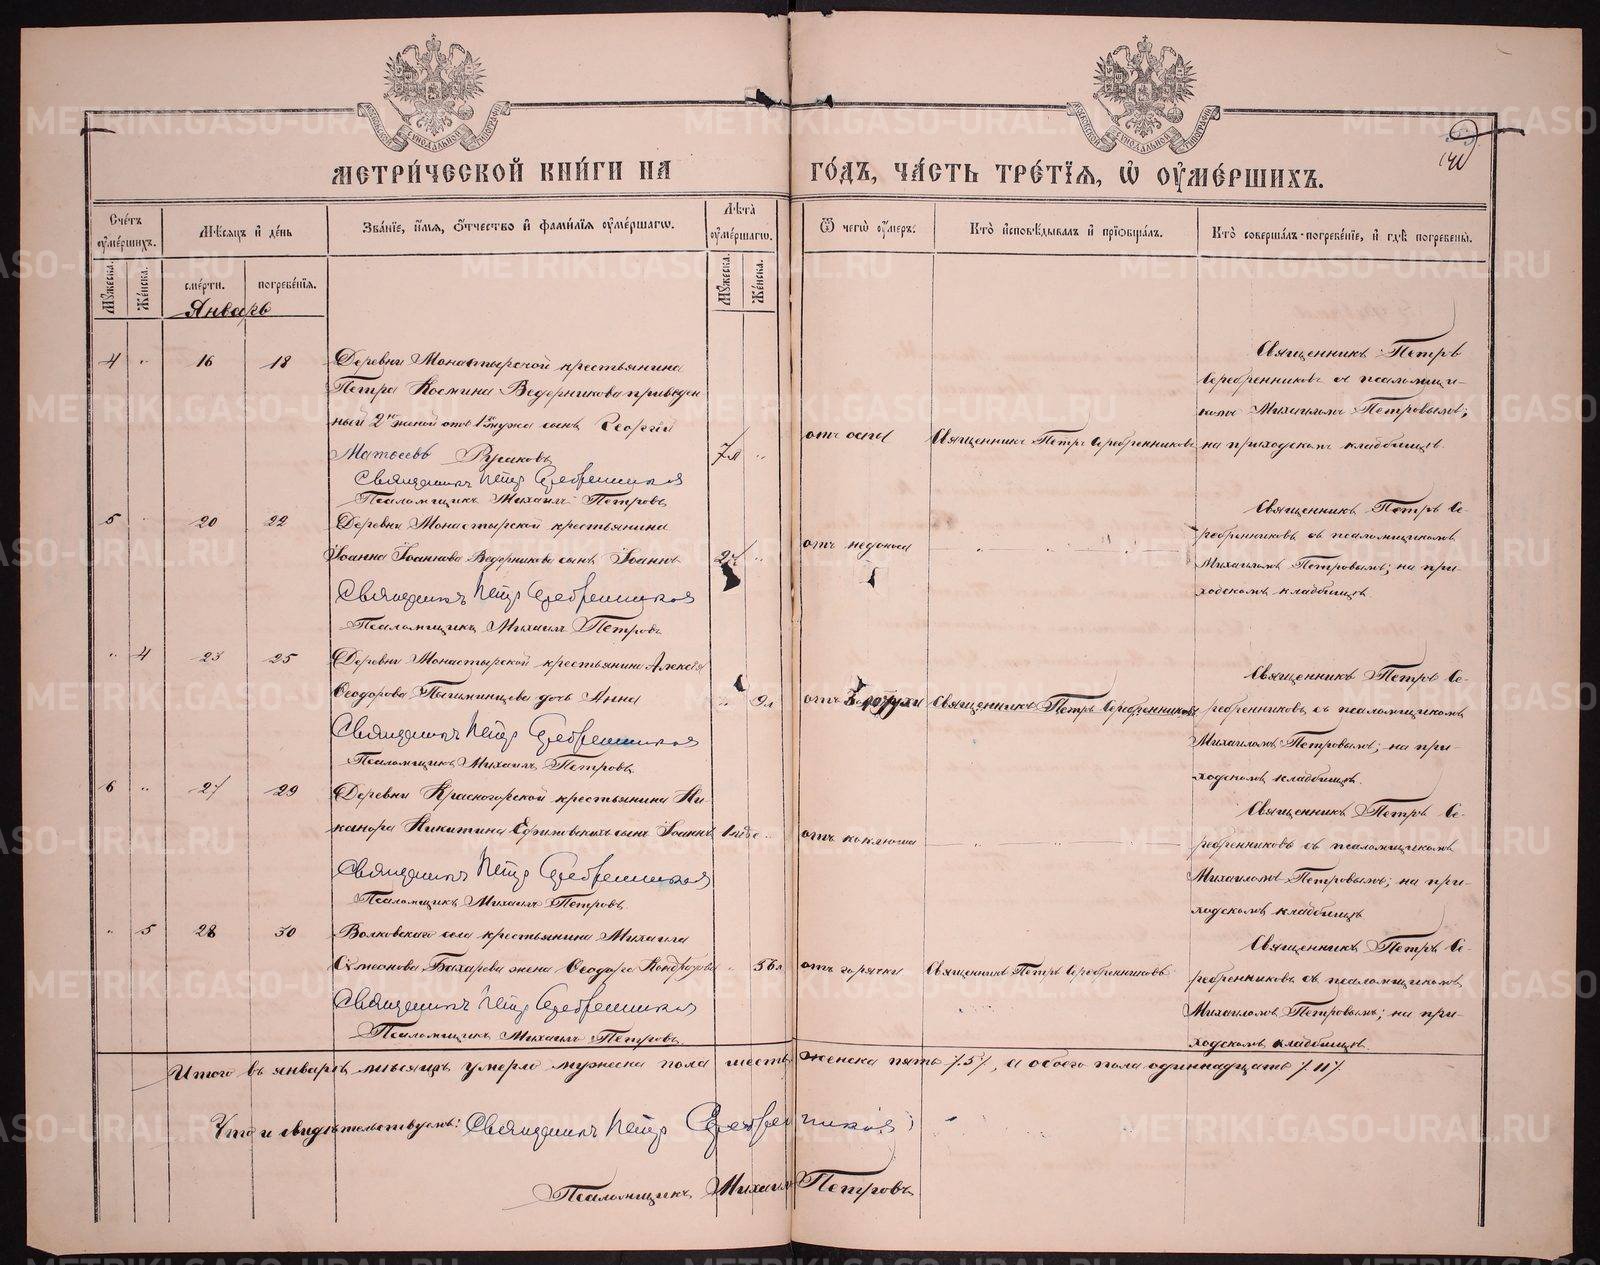 МЕТРИ́ЧЕСКОЙ КНИ́ГИ НА ГО́ДЪ, ЧА́СТЬ ТРЕ́ТІѦ, Ѡ ОУ҆МЕ́РШИХЪ.
Сче́тъ оу҆ме́ршихъ.
Мѣ́сяцъ и҆ де́нь
Зва́нїе, и҆́мя, ѻ҆́тчество и҆ фами́лїя оу҆ме́ршагѡ.
Лѣ́та оу҆ме́ршагѡ.
Ѿ чегѡ̀ оу҆́меръ.
Кто̀ и҆сповѣ́дывалъ и҆ прїѡбща́лъ.
Кто̀ соверша́лъ погребе́нїе, и҆ гдѣ̀ погребены̀.
Мꙋ́жеска.
Же́нска.
сме́рти.
погребе́нїя.
Мꙋ́жеска.
Же́нска.
Январь
4 " 16 18
Деревни Монастырской крестьянина
Петра Космина Ведерникова приведен
ный 2й женой отъ 1го мужа сынъ Георгій
Матѳеевъ Русаковъ 7л "
Священникъ Петръ Серебренниковъ
Псаломщикъ Михаилъ Петровъ
отъ оспы
Священникъ Петръ Серебренниковъ
Священникъ Петръ
Серебренниковъ съ псаломщи-
комъ Михаиломъ Петровымъ;
на приходскомъ кладбищѣ.
5 " 20 22
Деревни Монастырской крестьянина
Іоанна Іоаннова Ведерникова сынъ Іоаннъ
Священникъ Петръ Серебренниковъ
Псаломщикъ Михаилъ Петровъ
отъ недоноса
Священникъ Петръ Се-
ребренниковъ съ псаломщикомъ
Михаиломъ Петровымъ; на при-
ходскомъ кладбищѣ
" 4 23 25
Деревни Монастырской крестьянина Алексѣя
Ѳеодорова Пышминцева дочь Анна 9л
Священникъ Петръ Серебренниковъ
Псаломщикъ Михаилъ Петровъ
отъ
Священникъ Петръ Серебренниковъ
Священникъ Петръ Се-
ребренниковъ съ псаломщикомъ
Михаиломъ Петровымъ; на при-
ходскомъ кладбищѣ.
6 " 27 29
Деревни Красногорской крестьянина Ни-
канора Никитина сынъ Іоаннъ
Священникъ Петръ Серебренниковъ
Псаломщикъ Михаилъ Петровъ.
отъ коклюша
Священникъ Петръ Се-
ребренниковъ съ псаломщикомъ
Михаиломъ Петровымъ; на при-
ходскомъ кладбищѣ
" 5 28 30
Волковскаго села крестьянина Михаила
Симеонова Бахарева жена Ѳеодора " 56л
Священникъ Петръ Серебренниковъ
Псаломщикъ Михаилъ Петровъ.
отъ горячки
Священникъ Петръ Серебренниковъ
Священникъ Петръ Се-
ребренниковъ съ псаломщикомъ
Михаиломъ Петровымъ; на при-
ходскомъ кладбищѣ.
Итого въ январѣ мѣсяцѣ умерло мужеска пола шесть женска пять /5/, а обоего пола одиннадцать /11/.
Что и свидѣтельствуемъ: Священникъ Петръ Серебренниковъ
Псаломщикъ Михаилъ Петровъ
METRIKI.GASO-URAL.RU